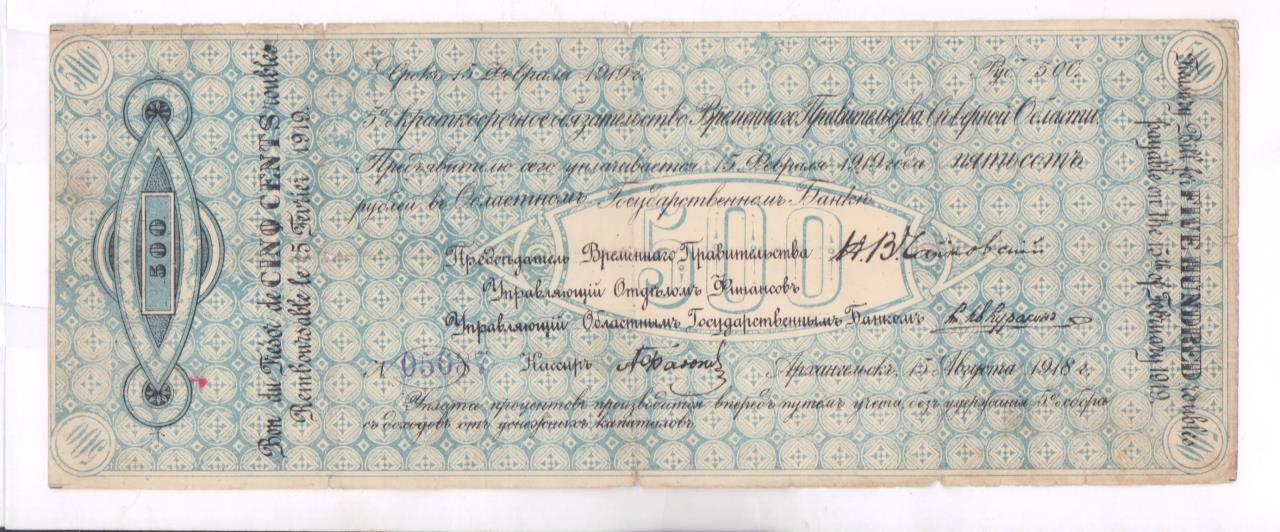 500
Bon du Trésor de CINQ CENTS roubles
Remboursable le 15 Février 1919.
Срокъ 15 Февраля 1919 г.
Руб. 500.
5% Краткосрочное обязательство Временнаго Правительства Сѣверной Области.
Предъявителю сего уплачивается 15 Февраля 1919 года пятьсотъ
рублей въ Областномъ Государственномъ Банкѣ.
500
Предсѣдатель Временнаго Правительства Н.В. Чайковскій
Управляющій Отдѣломъ Финансовъ
Управляющій Областнымъ Государственнымъ Банкомъ
N 05687 Кассиръ
Архангельскъ, 15 Августа 1918 г.
Уплата процентовъ производится впередъ путемъ учета, безъ удержанія 5% сбора
съ доходовъ отъ денежныхъ капиталовъ.
Treasury Bill for FIVE HUNDRED roubles
payable on the 15th of February 1919
500
500
500
500